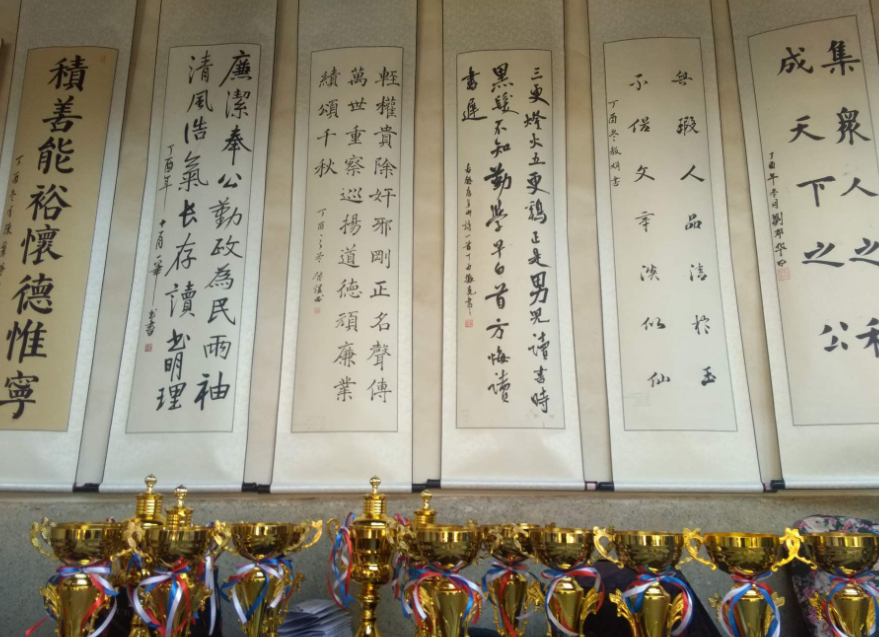 集眾人之私
成天下之公
無瑕人品清於玉
不俗文章淡似仙
丁酉冬敬明書
三更燈火五更鷄正是男兒讀書時
黑髮不知勤學早白首方悔讀
書遲
輕權貴除奸邪剛正名聲傳
萬世重察巡揚道德頑廉業
績頌千秋
廉潔奉公勤政為民兩袖
清風浩氣长存讀书明理
丁酉年十一月
積善能裕懷德惟寧